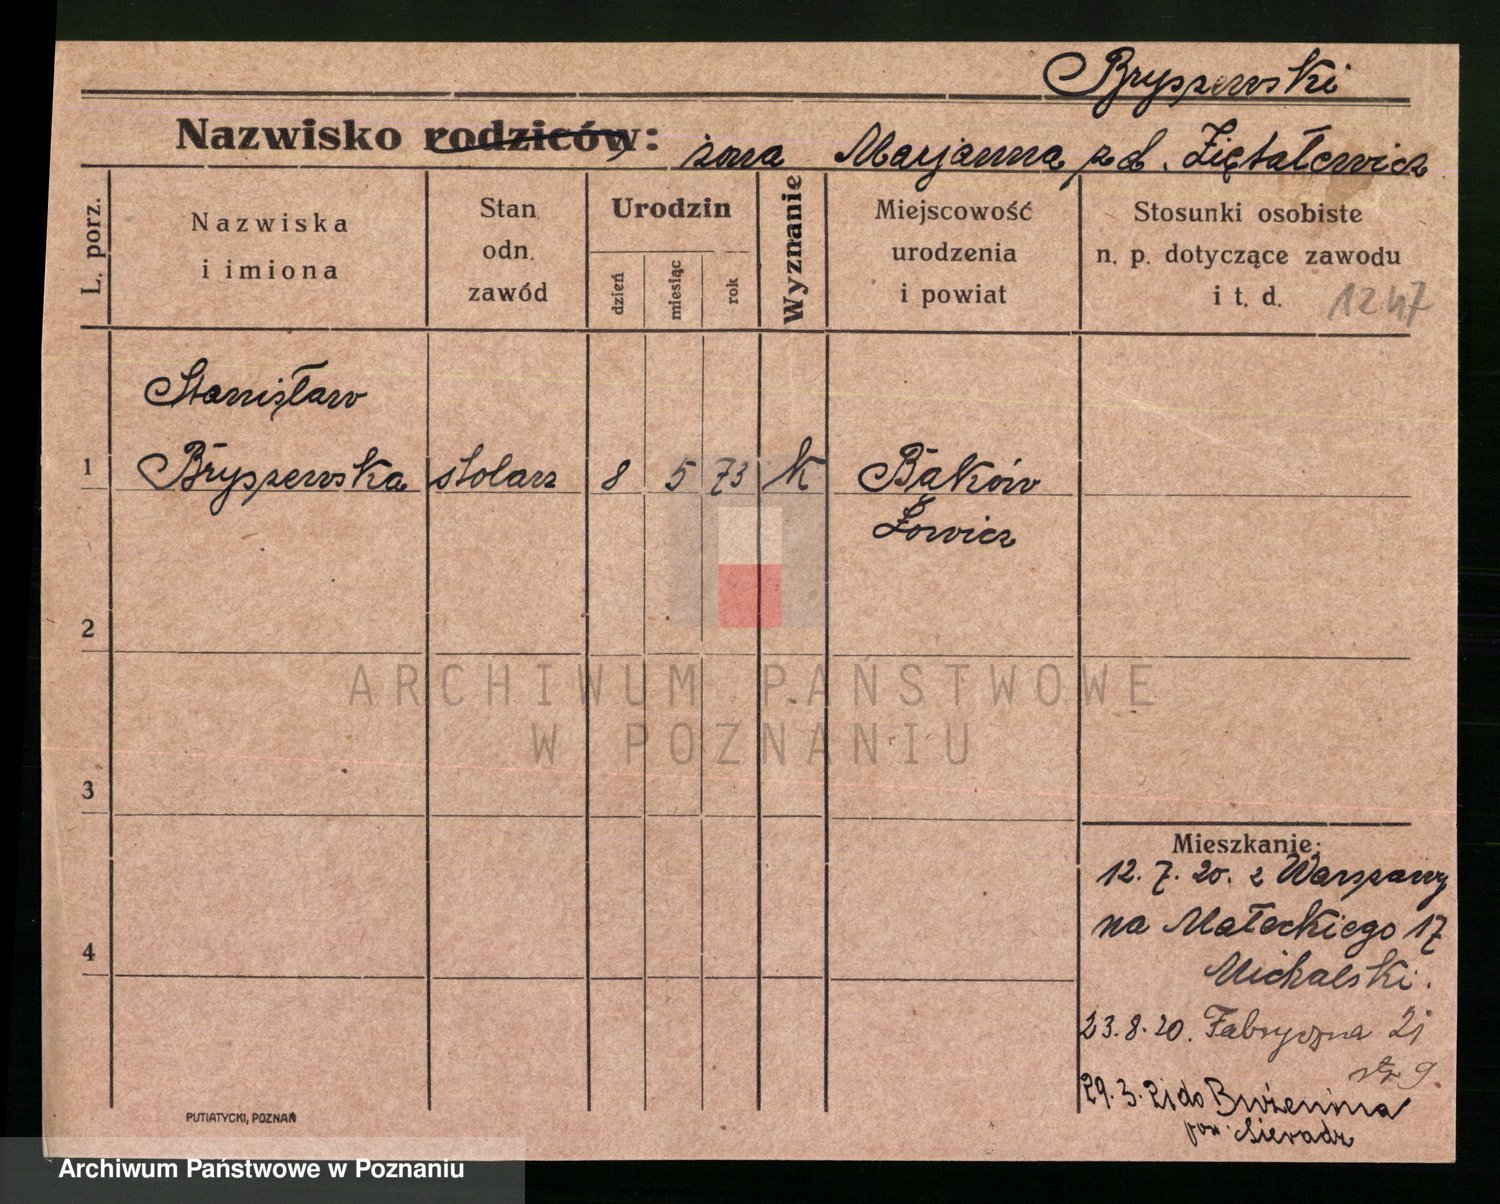 Bryszewski
Nazwisko rodziców: żona Marjanna z d. Ziętalewicz
L. porz.
Nazwiska i imiona
Stan odn. zawód
Urodzin
dzień
miesiąc
rok
Wyznanie
Miejscowość urodzenia i powiat
Stosunki osobiste n. p. dotyczące zawodu i t. d.
1247
Stanisław
1 Bryszewska stolarz 8 5 73 k Bąków
Łowicz
2
3
4
Mieszkanie:
12. 7. 20. z Warszawy
na Małeckiego 17
Michalski.
23. 8. 20. Fabryczna 21
str 9.
29. 3. 21 do
pow. Sieradz
PUTIATYCKI, POZNAŃ
ARCHIWUM PAŃSTWOWE
W POZNANIU
Archiwum Państwowe w Poznaniu